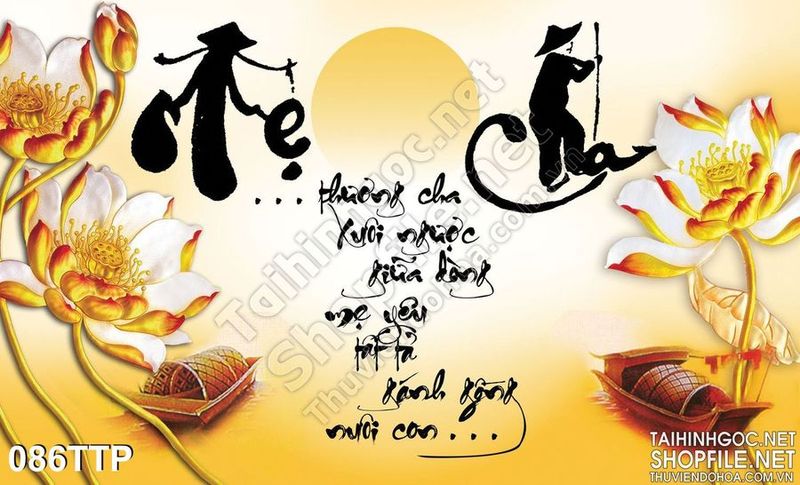 Mẹ Cha
... thương cha
xuôi ngược
giữa dòng
mẹ yêu
tất tả
gánh gồng
nuôi con ...
Taihinhgoc.net
Shopfile.net
Thuviendohoa.com.vn
086TTP
TAIHINHGOC.NET
SHOPFILE.NET
THUVIENDOHOA.COM.VN